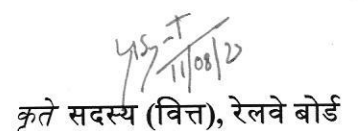 11/08/2
कृते सदस्य (वित्त), रेलवे बोर्ड